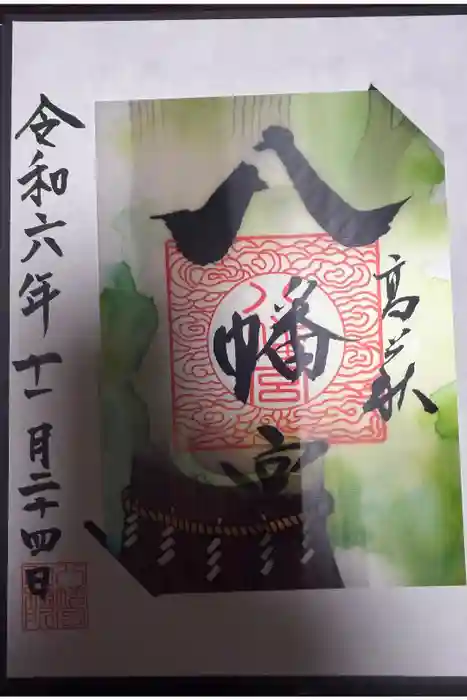 高萩
八幡宮
令和六年十一月二十四日